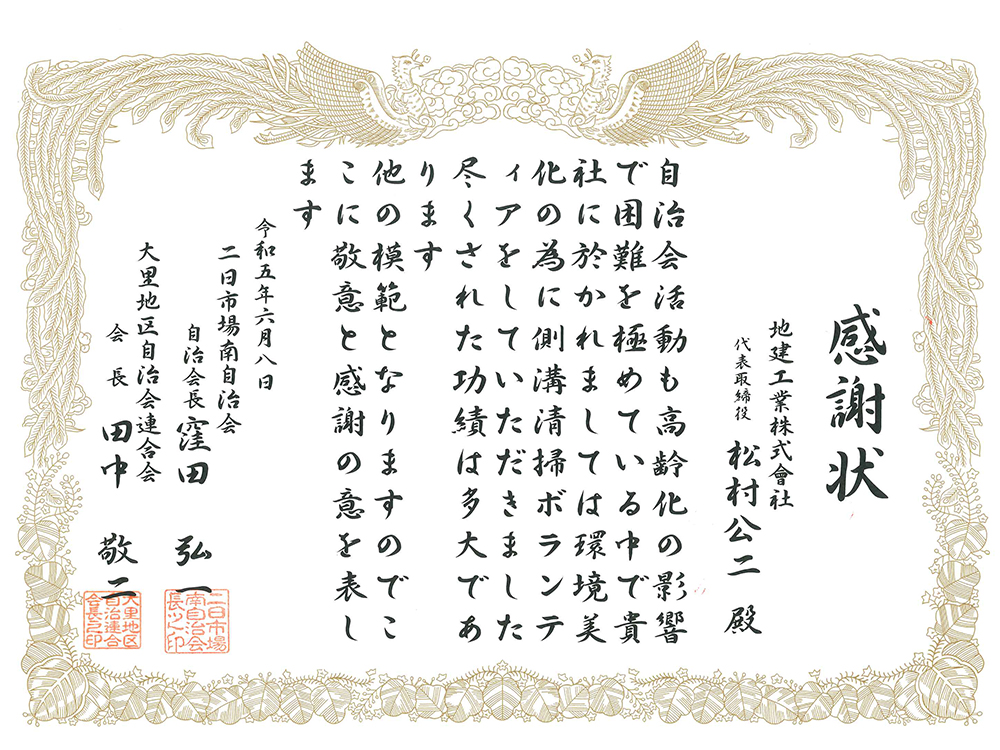 感謝状
地建工業株式會社
代表取締役 松村公二 殿
自治会活動も高齢化の影響
で困難を極めている中で貴
社に於かれましては環境美
化の為に側溝清掃ボランテ
ィアをしていただきました
尽くされた功績は多大であ
ります
他の模範となりますのでこ
こに敬意と感謝の意を表し
ます
令和五年六月八日
二日市場南自治会
自治会長 窪田 弘一
二日市場
南自治会
長之印
大里地区自治会連合会
会長 田中 敬二
大里地区
自治連合
会長之印